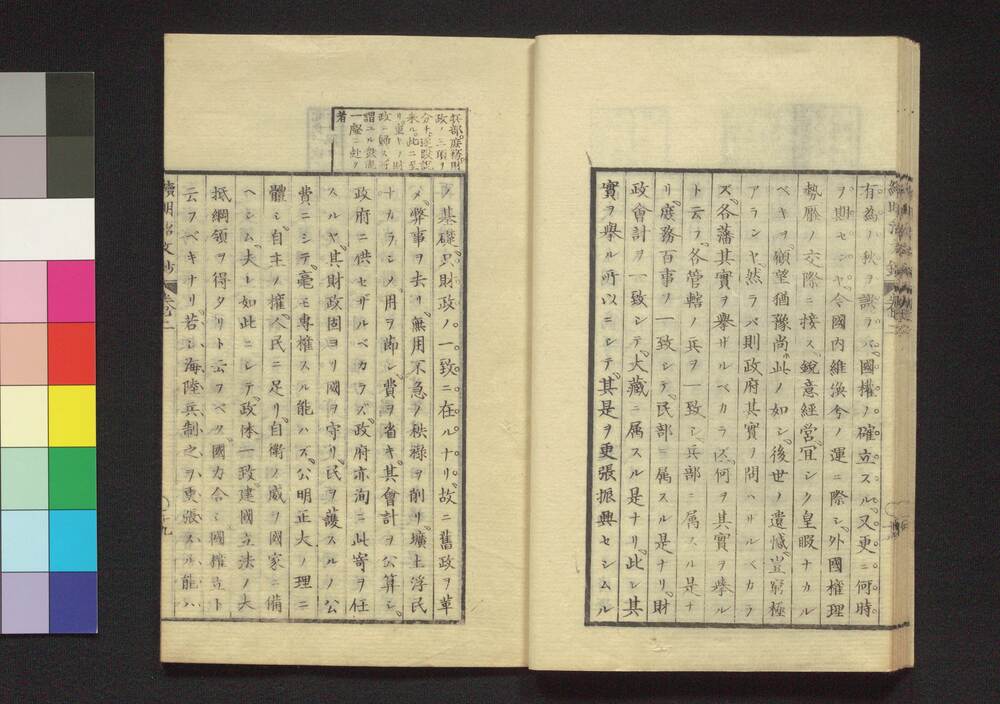 有為ノ秋ヲ誤ラバ國權ノ確立スル又更ニ何時
ヲ期センヤ令國内維渙兮ノ運ニ際シ外國權理
勢厤ノ交際ニ接ス鋭意經営冝シク皇暇ナカル
ベキヲ顧望猶豫尚此ノ如シ後世ノ遺憾豈窮極
アランヤ然ラバ則政府其實ノ問ハザルベカラ
ズ各藩其實ヲ擧ザルベカラズ何ヲ其實ヲ擧ル
ト云フ各管轄ノ兵ヲ一致シ兵部ニ属スル是ナ
リ庻務百事ノ一致シテ民部ニ属スル是ナリ財
政會計ヲ一致シテ大藏ニ属スル是ナリ此シ其
實ヲ擧ル所以ニシテ其是ヲ更張振興セシムル
兵部庻務財
政ノ三項ヲ
分チ逐
来ル此ニ至
リ重キヲ財
政ニ帰ス所
謂ユル
一廛ニ
者
ノ基礎只財政ノ一致ニ在ルナリ故ニ舊政ヲ革
メ弊事ヲ去リ無用不急ノ秩祿ヲ削リ壙土浮民
ナカラシメ用ヲ節シ費ヲ省キ其會計ヲ公算シ
政府ニ供セザルベカラズ政府亦洵ニ此寄ヲ任
スルヤ其財政固ヨリ國ヲ守リ民ヲ護スルノ公
費ニシテ毫モ專權スル能ハズ公明正大ノ理ニ
體シ自主ノ權人民ニ足リ自衛ノ威ヲ國家ニ備
ヘシム夫レ如此ニシテ政体一政建國立法ノ大
抵綱領ヲ得タリト云フベク國力合シ國權立ト
云フベキナリ若シ海陸兵制之ヲ更張スル能ハ
續明治文抄 卷二
九